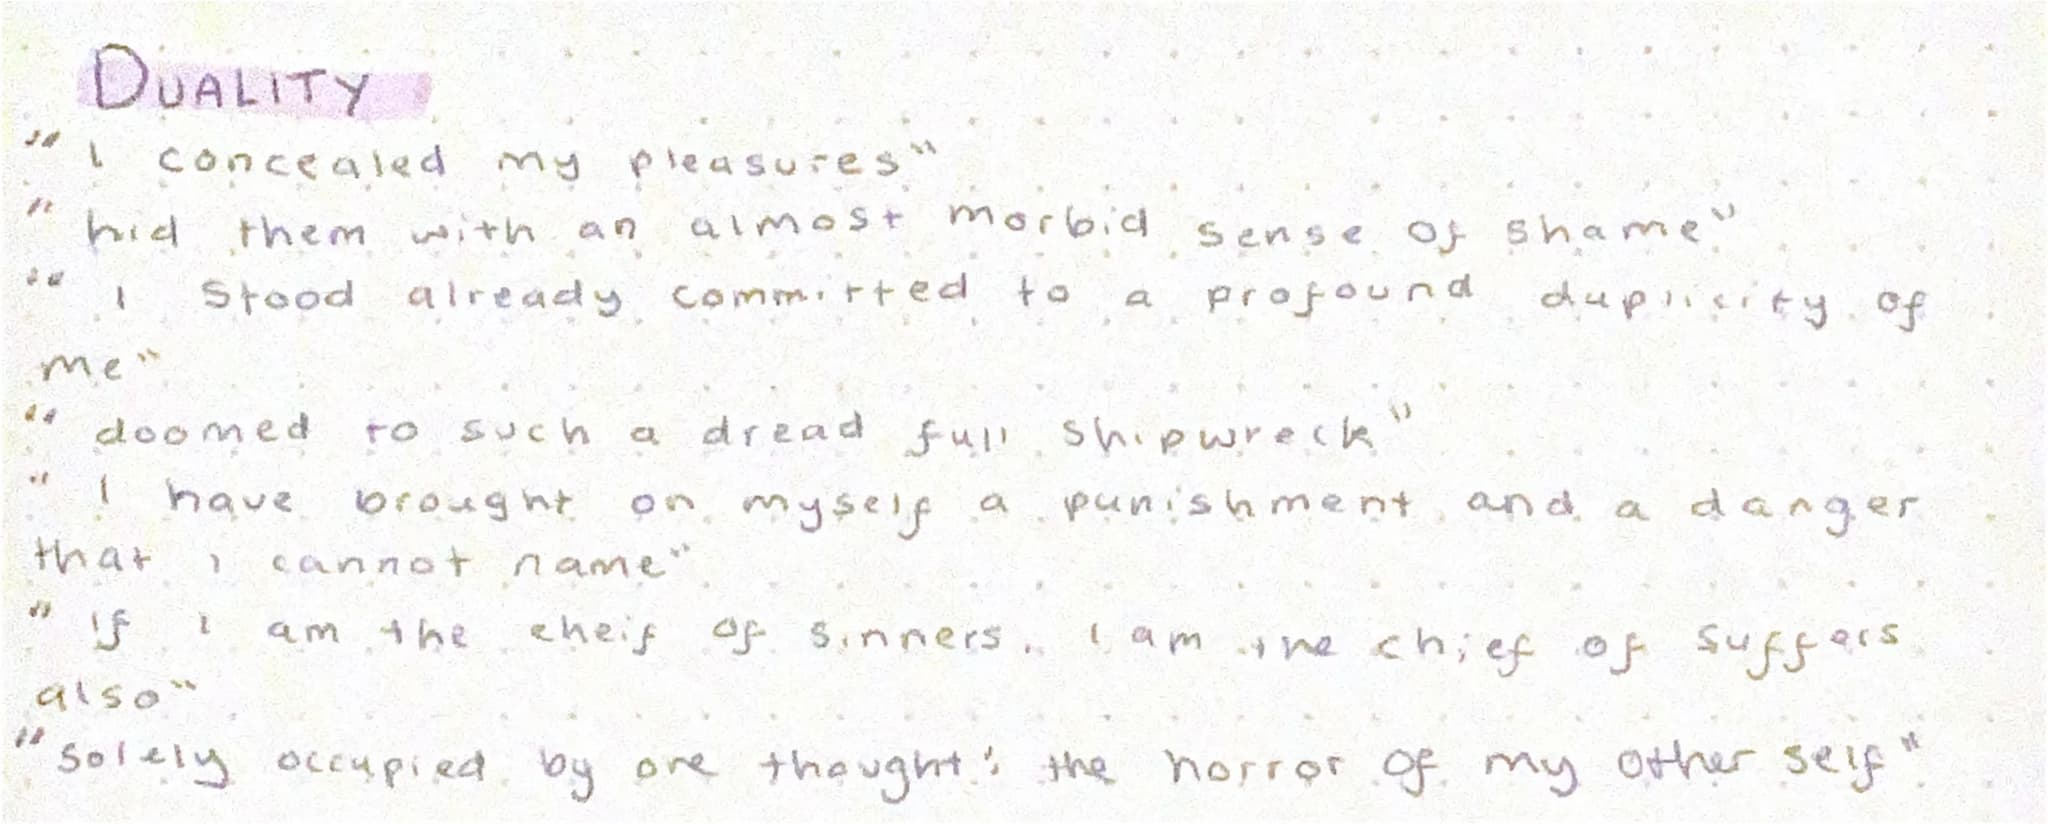 DUALITY
" I concealed my pleasures"
" hid them with an almost morbid sense of shame"
" I stood already committed to a profound duplicity of
me"
" doomed to such a dread full shipwreck"
" I have brought on myself a punishment and a danger
that i cannot name"
" if I am the cheif of sinners. I am the chief of suffers
also"
"solely occupied by one thought: the horror of my other self"